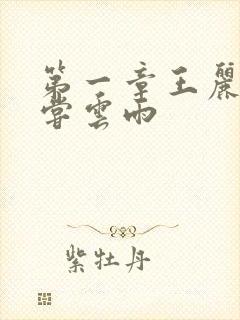 第一章王麗
嘗雲雨
紫牡丹